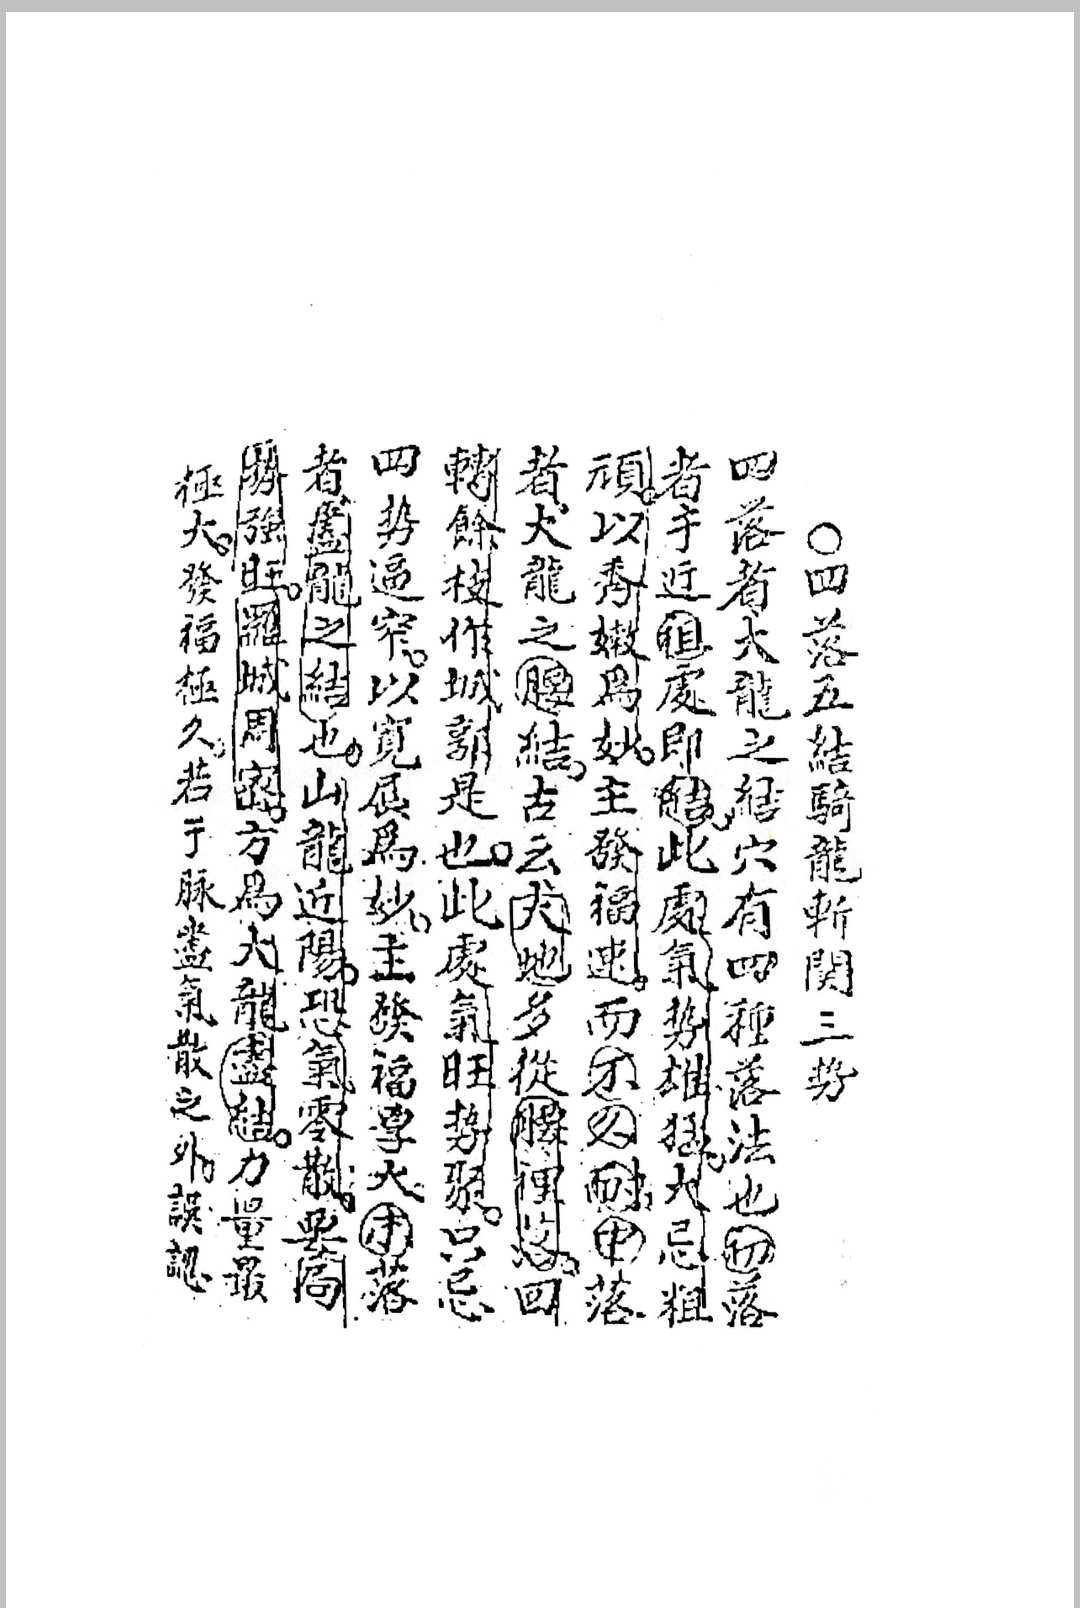 〇四落五結騎龍斬関三势
四落者大龍之結穴有四種落法也初落
者于近祖處即結此處氣势雄猛大忌粗
頑以秀嫩爲妙主發福速而不久耐中落
者大龍之腰結古云大地多從腰裡落回
轉餘枝作城郭是也此處氣旺势聚只忌
四势逼窄以寛展爲妙主發福厚大末落
者盡龍之結也山龍近陽恐氣零散要局
势強旺羅城周密方爲大龍盡結力量最
極大發福極久若于脉盡氣散之外誤認